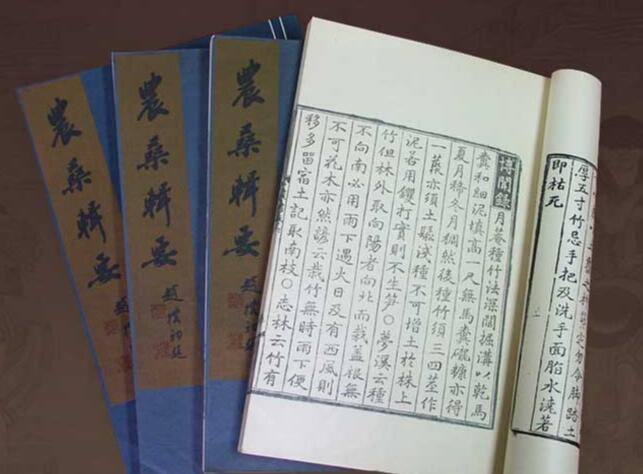 農桑輯要
趙樸初題
農桑輯要
趙樸初題
農桑輯要
趙樸初題
勿令脚踏土
厚五寸竹忌手把及洗手面脂水澆著
即枯死
博聞錄月菴種竹法深闊掘溝以乾馬
糞和細泥填高一尺無馬糞礱糠亦得
夏月稀冬月稠然後種竹須三四莖作
一蔟亦須土鬆淺種不可增土於株上
泥若用钁打實則不生笋〇夢溪云種
竹但林外取向陽者向北而栽蓋根無
不向南必用雨下遇火日及有西風則
不可花木亦然諺云栽竹無時雨下便
移多留宿土記取南枝〇志林云竹有